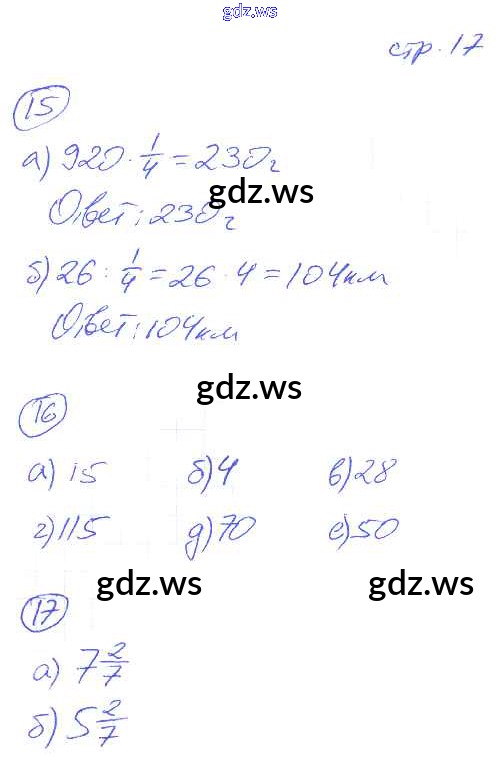 gdz.ws
стр. 17
15
а) 920 · 1/4 = 230г
gdz.ws
Ответ: 230г
б) 26 : 1/4 = 26 · 4 = 104км
Ответ: 104км
gdz.ws
16
а) 15 б) 4 в) 28
г) 115 д) 70 е) 50
gdz.ws gdz.ws
17
а) 7 2/7
б) 5 2/7